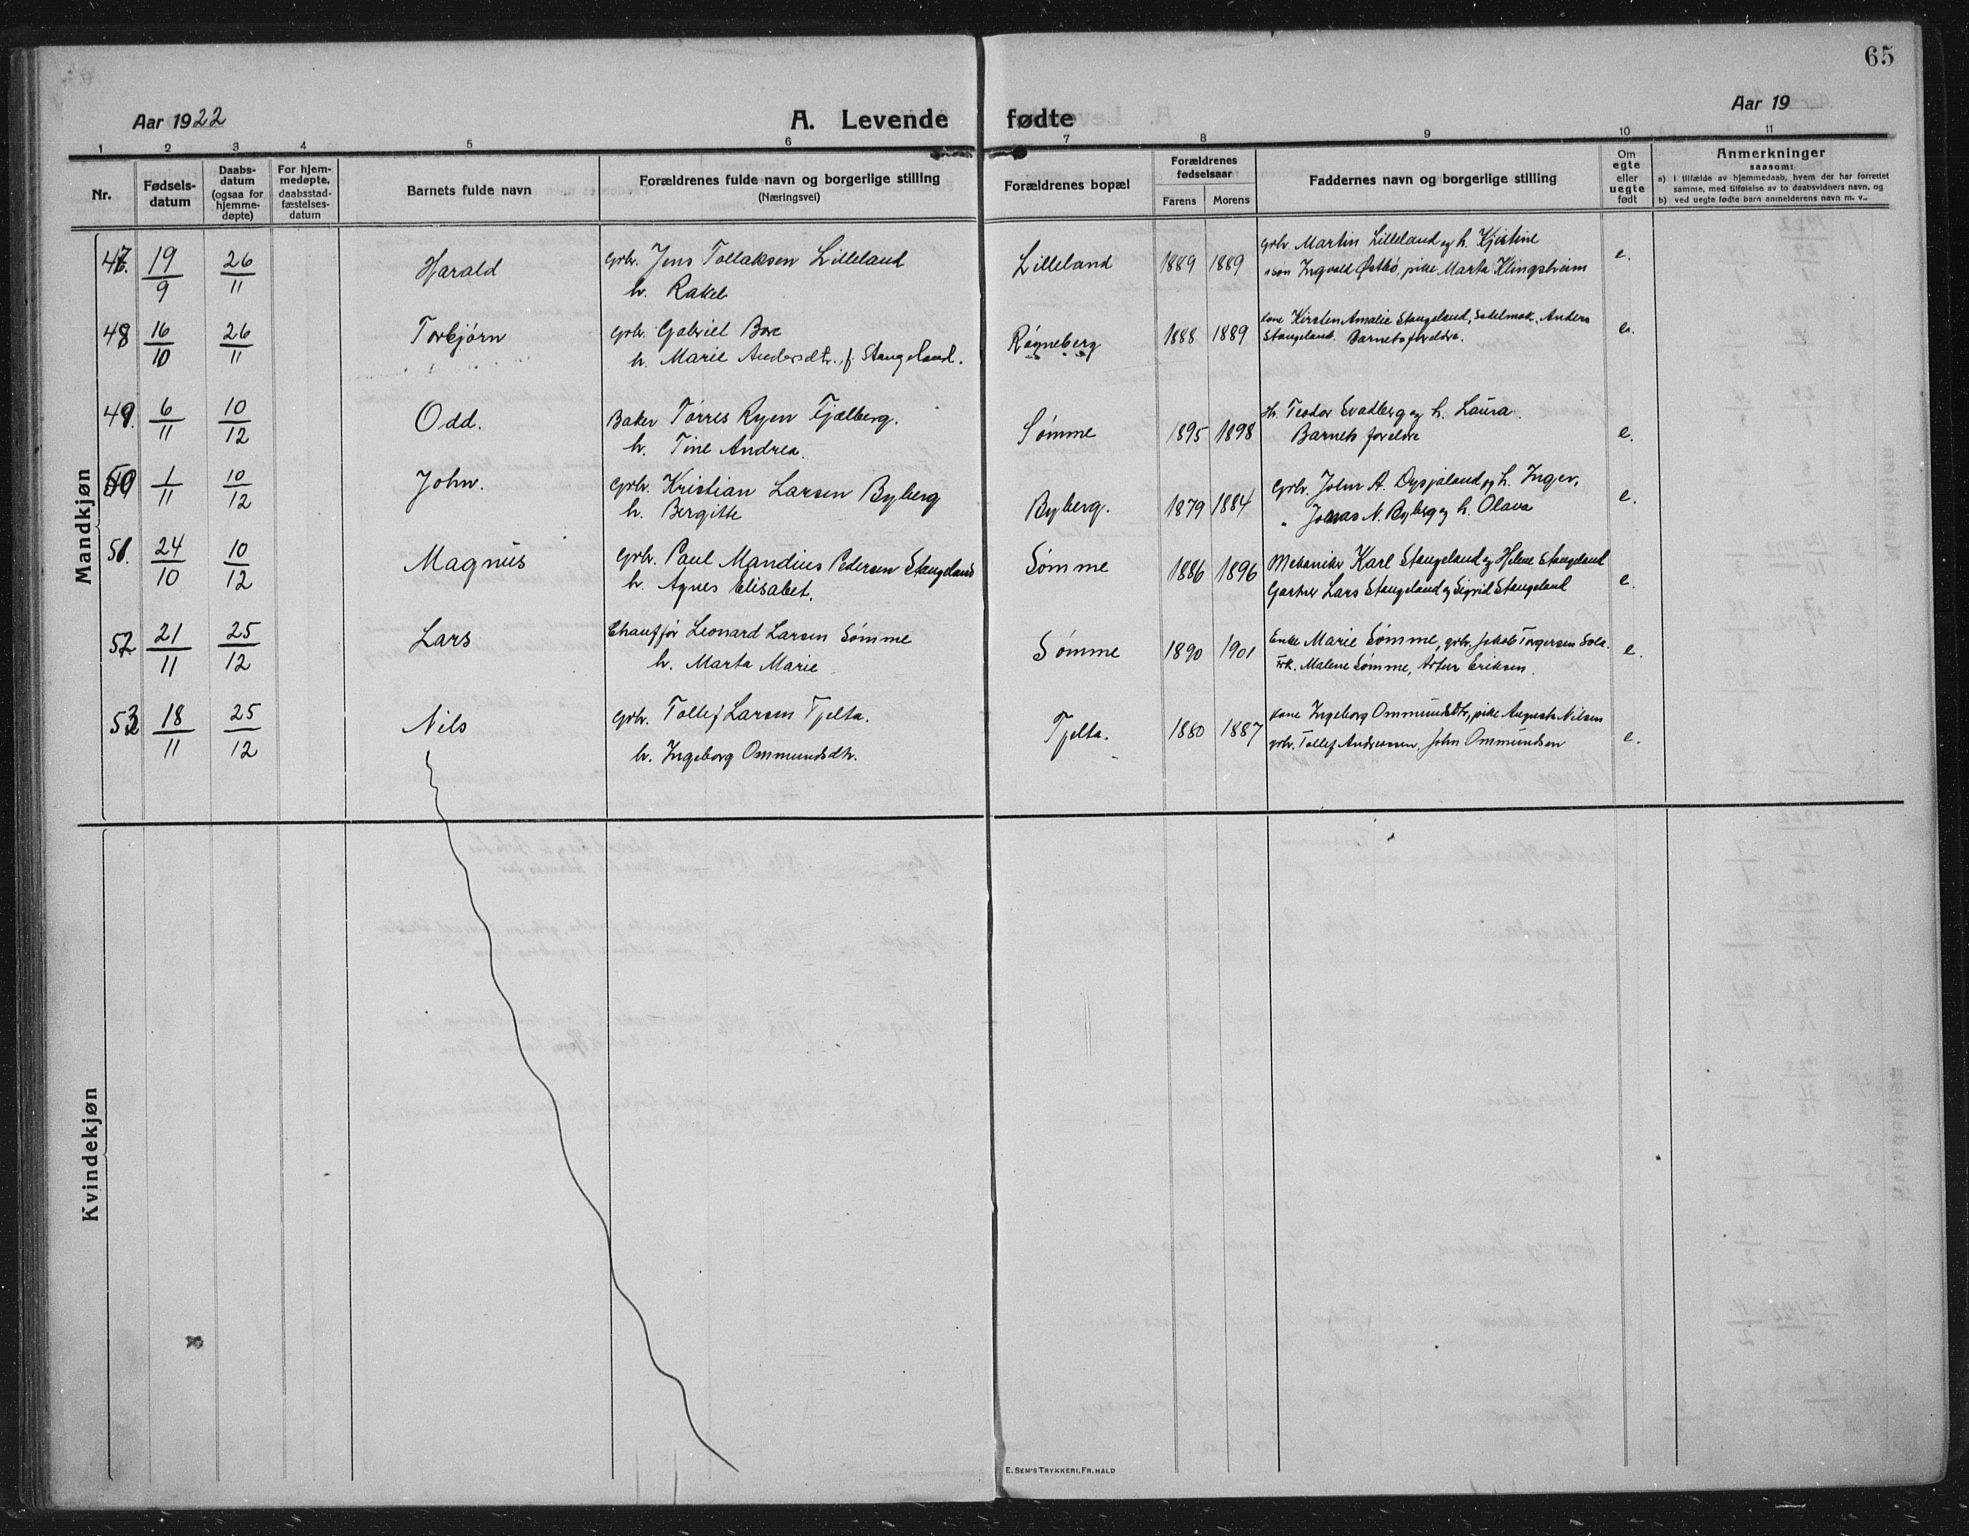 65
Aar 1922
A. Levende fødte
Aar 19
1 2 3 4 5 6 7 8 9 10 11
Nr.
Fødsels-
datum
Daabs-
datum
(ogsaa for
hjemme-
døpte)
For hjem-
medøpte,
daabsstad-
fæstelses-
datum
Barnets fulde navn
Forældrenes fulde navn og borgerlige stilling
(Næringsvei)
Forældrenes bopæl
Forældrenes
fødselsaar
Farens Morens
Faddernes navn og borgerlige stilling
Om
egte
eller
uegte
født
Anmerkninger
saasom:
a) i tilfælde av hjemmedaab, hvem der har forrettet
samme, med tilføielse av to daabsvidners navn, og
b) ved uegte fødte barn anmelderens navn m. v.
Mandkjøn
47. 19/9 26/11 Harald Grbr. Jens Tollaksen Lilleland Lilleland 1889 1889 Grbr. Martin Lilleland og h. Kjistine e.
h. Rakel
Ingvald Østbø, pike Marta Klingsheim
48 16/10 26/11 Torbjørn Grbr. Gabriel Bore Røyneberg 1888 1889 Kone Kirsten Amalie Stangeland, Salelmak. Anders e.
h. Marie Andersdtr. f. Stangeland.
Stangeland. Barnets foreldre.
49. 6/11 10/12 Odd. Baker Tørres Ryen Fjælberg. Sømme 1895 1898 Hr. Teodor Svadberg og h. Laura. e.
h. Tine Andrea.
Barnets foreldre
50 1/11 10/12 John. Grbr. Kristian Larsen Byberg Byberg. 1879 1884 Grbr. John A. Dysjaland og h. Inger, e.
h. Bergitte
" Jonas N. Byberg og h. Olava
51. 24/10 10/12 Magnus Grbr. Paul Mandius Pedersen Stangeland Sømme 1886 1896 Mekaniker Karl Stangeland og Helene Stangeland e.
h. Agnes Elisabet.
Gartner Lars Stangeland og Sigrid Stangeland
52 21/11 25/12 Lars Chauffør Leonard Larsen Sømme Sømme 1890 1901 Enke Marie Sømme, grbr. Jakob Torgersen Sola. e.
h. Marta Marie
Frk. Malene Sømme, Artur Eriksen.
53 18/11 25/12 Nils Grbr. Tollef Larsen Tjelta. Tjelta. 1880 1887 Kone Ingeborg Ommundsdtr, pike Augusta Nilsen e.
h. Ingeborg Ommundsdtr.
grbr. Tollef Andreassen, John Ommundsen
Kvindekjøn
E. SEM'S TRYKKERI, FR.HALD